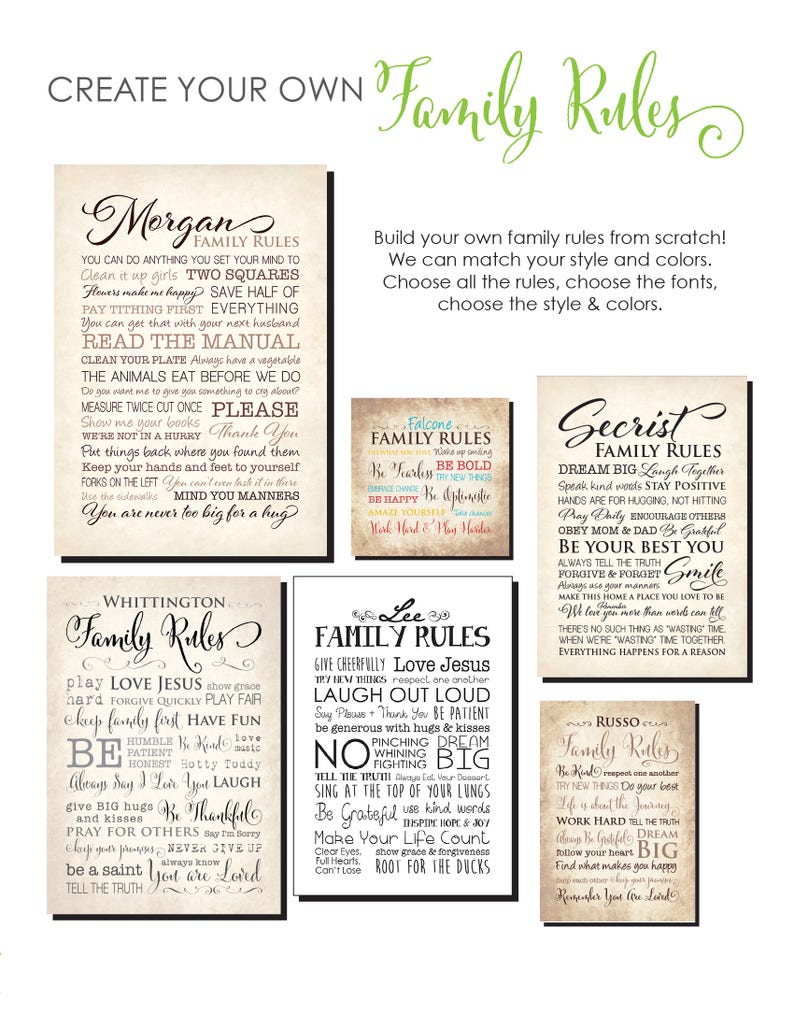 CREATE YOUR OWN Family Rules
Build your own family rules from scratch!
We can match your style and colors.
Choose all the rules, choose the fonts,
choose the style & colors.
Morgan
FAMILY RULES
YOU CAN DO ANYTHING YOU SET YOUR MIND TO
Clean it up girls TWO SQUARES
Flowers make me happy SAVE HALF OF
PAY TITHING FIRST EVERYTHING
You can get that with your next husband
READ THE MANUAL
CLEAN YOUR PLATE Always have a vegetable
THE ANIMALS EAT BEFORE WE DO
Do you want me to give you something to cry about?
MEASURE TWICE CUT ONCE PLEASE
Show me your books
WE'RE NOT IN A HURRY Thank You
Put things back where you found them
Keep your hands and feet to yourself
FORKS ON THE LEFT You can't even taste it in there
Use the sidewalks MIND YOU MANNERS
You are never too big for a hug
Falcone
FAMILY RULES
DO WHAT YOU LOVE Wake up smiling
Be Fearless BE BOLD
TRY NEW THINGS
EMBRACE CHANGE
BE HAPPY Be Optimistic
AMAZE YOURSELF Take chances
Work Hard & Play Harder
Secrist
FAMILY RULES
DREAM BIG Laugh Together
Speak kind words STAY POSITIVE
HANDS ARE FOR HUGGING, NOT HITTING
Pray Daily ENCOURAGE OTHERS
OBEY MOM & DAD Be Grateful
BE YOUR BEST YOU
ALWAYS TELL THE TRUTH
FORGIVE & FORGET Smile
Always use your manners
MAKE THIS HOME A PLACE YOU LOVE TO BE
Remember
We love you more than words can tell
THERE'S NO SUCH THING AS "WASTING" TIME,
WHEN WE'RE "WASTING" TIME TOGETHER.
EVERYTHING HAPPENS FOR A REASON
WHITTINGTON
Family Rules
play LOVE JESUS show grace
hard FORGIVE QUICKLY PLAY FAIR
keep family first HAVE FUN
BE HUMBLE PATIENT HONEST Be Kind love music
Hotty Toddy
Always Say I Love You LAUGH
give BIG hugs and kisses Be Thankful
PRAY FOR OTHERS Say I'm Sorry
keep your promises NEVER GIVE UP
be a saint always know You are Loved
TELL THE TRUTH
Lee
FAMILY RULES
GIVE CHEERFULLY Love Jesus
TRY NEW THINGS respect one another
LAUGH OUT LOUD
Say Please + Thank You BE PATIENT
be generous with hugs & kisses
NO PINCHING WHINING FIGHTING DREAM BIG
TELL THE TRUTH Always Eat Your Dessert
SING AT THE TOP OF YOUR LUNGS
Be Grateful use kind words
INSPIRE HOPE & JOY
Make Your Life Count
Clear Eyes, Full Hearts, Can't Lose show grace & forgiveness
ROOT FOR THE DUCKS
RUSSO
Family Rules
Be Kind respect one another
TRY NEW THINGS Do your best
Life is about the Journey
WORK HARD TELL THE TRUTH
Always Be Grateful DREAM
follow your heart BIG
Find what makes you happy
help each other keep your promises
Remember You Are Loved